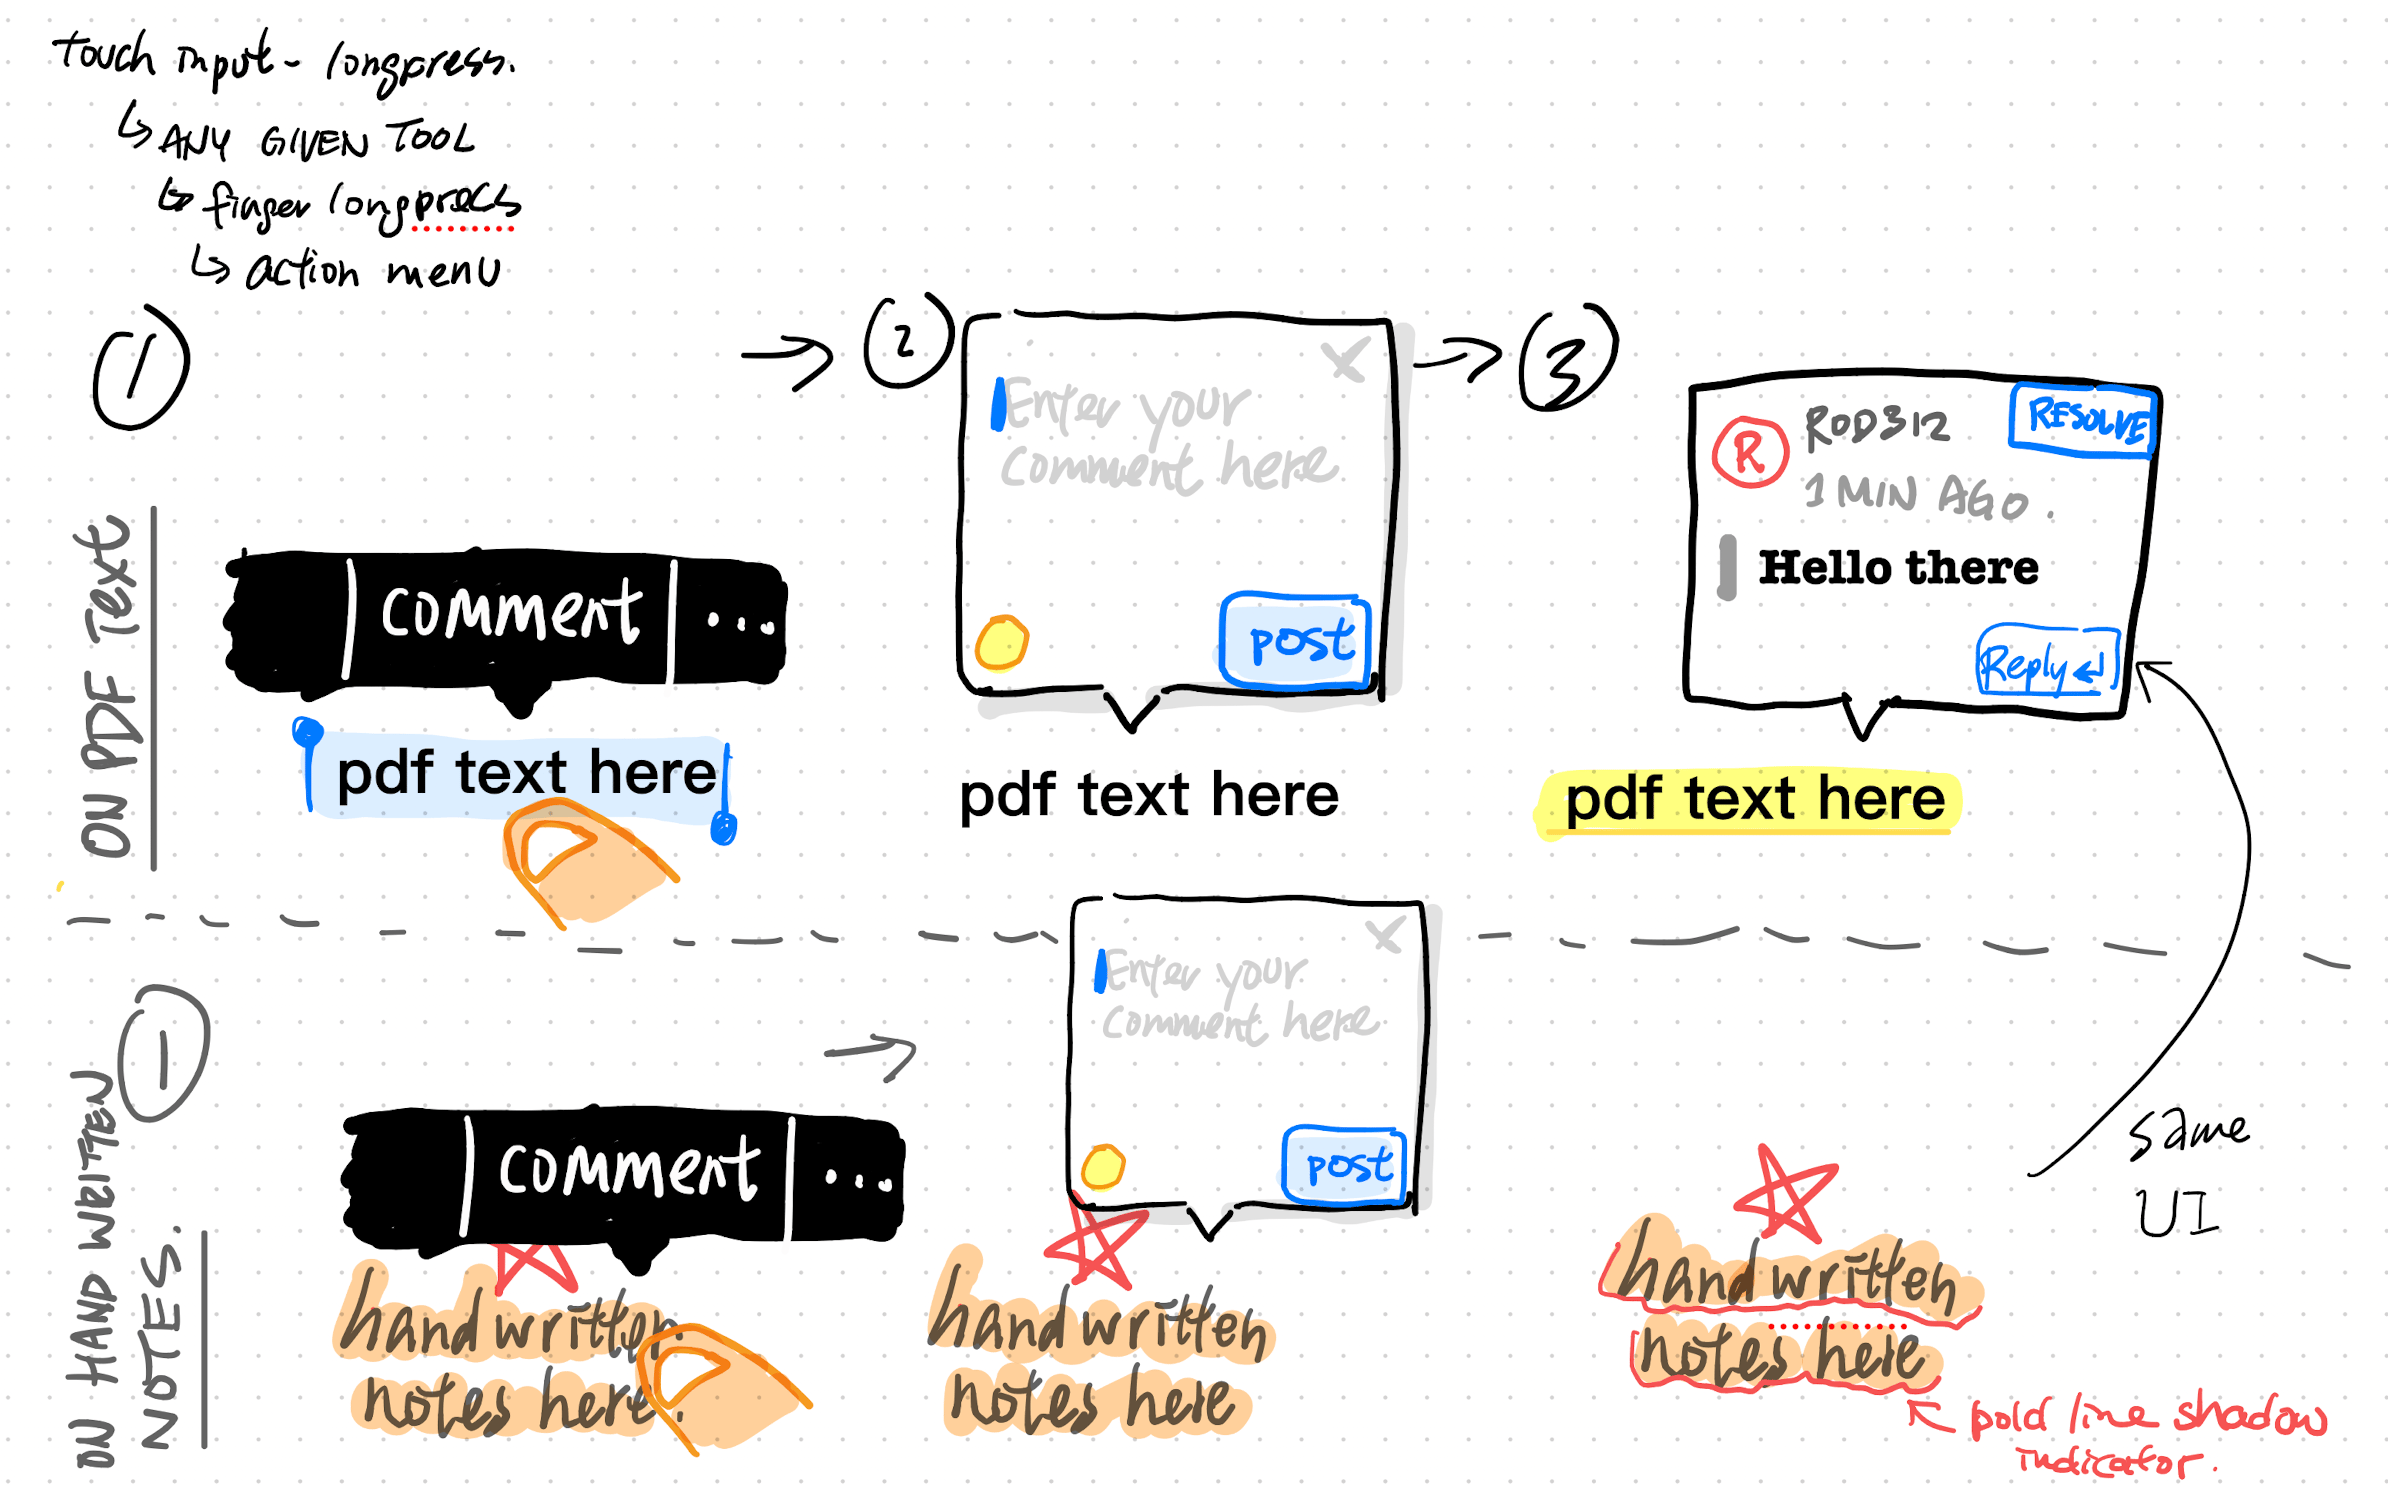 Touch input - longpress.
↳ ANY GIVEN TOOL
↳ finger longprecs
↳ action menu
1
→ 2
→ 3
ON PDF Text
comment | ...
pdf text here
X
Enter your
comment here
post
pdf text here
R
ROD312
RESOLVE
1 MIN AGO.
Hello there
Reply ↵
pdf text here
1
ON HAND WRITTEN
NOTES.
comment | ...
handwritten
notes here.
X
Enter your
comment here
post
handwritten
notes here
same
UI
handwritten
notes here
line shadow
indicator.